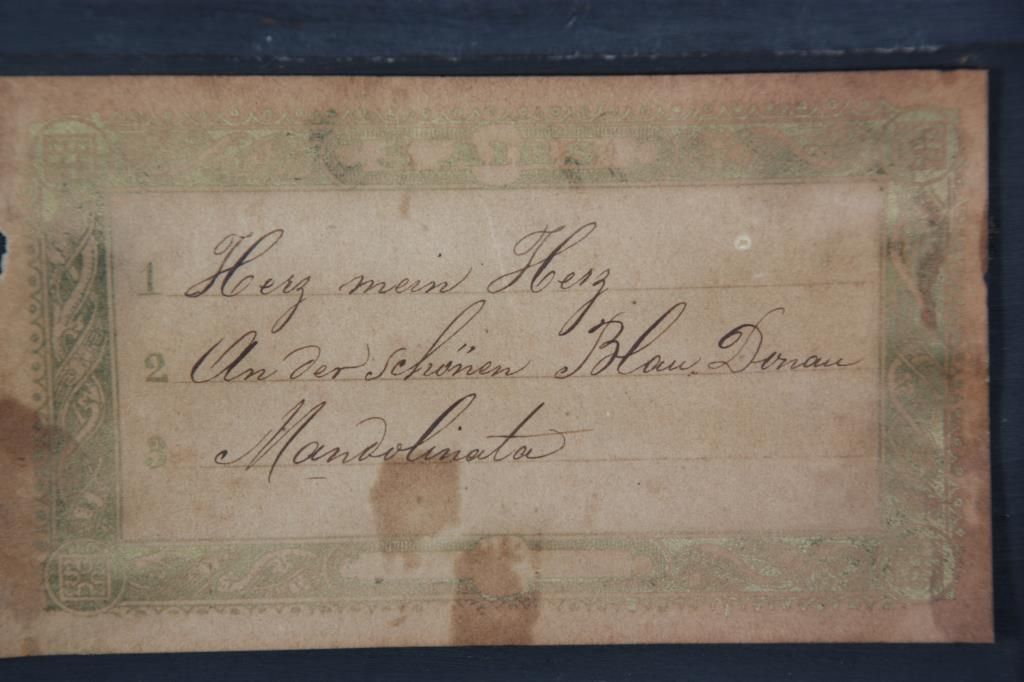 AIRS
1 Herz mein Herz
2 An der schönen Blau. Donau
3 Mandolinata